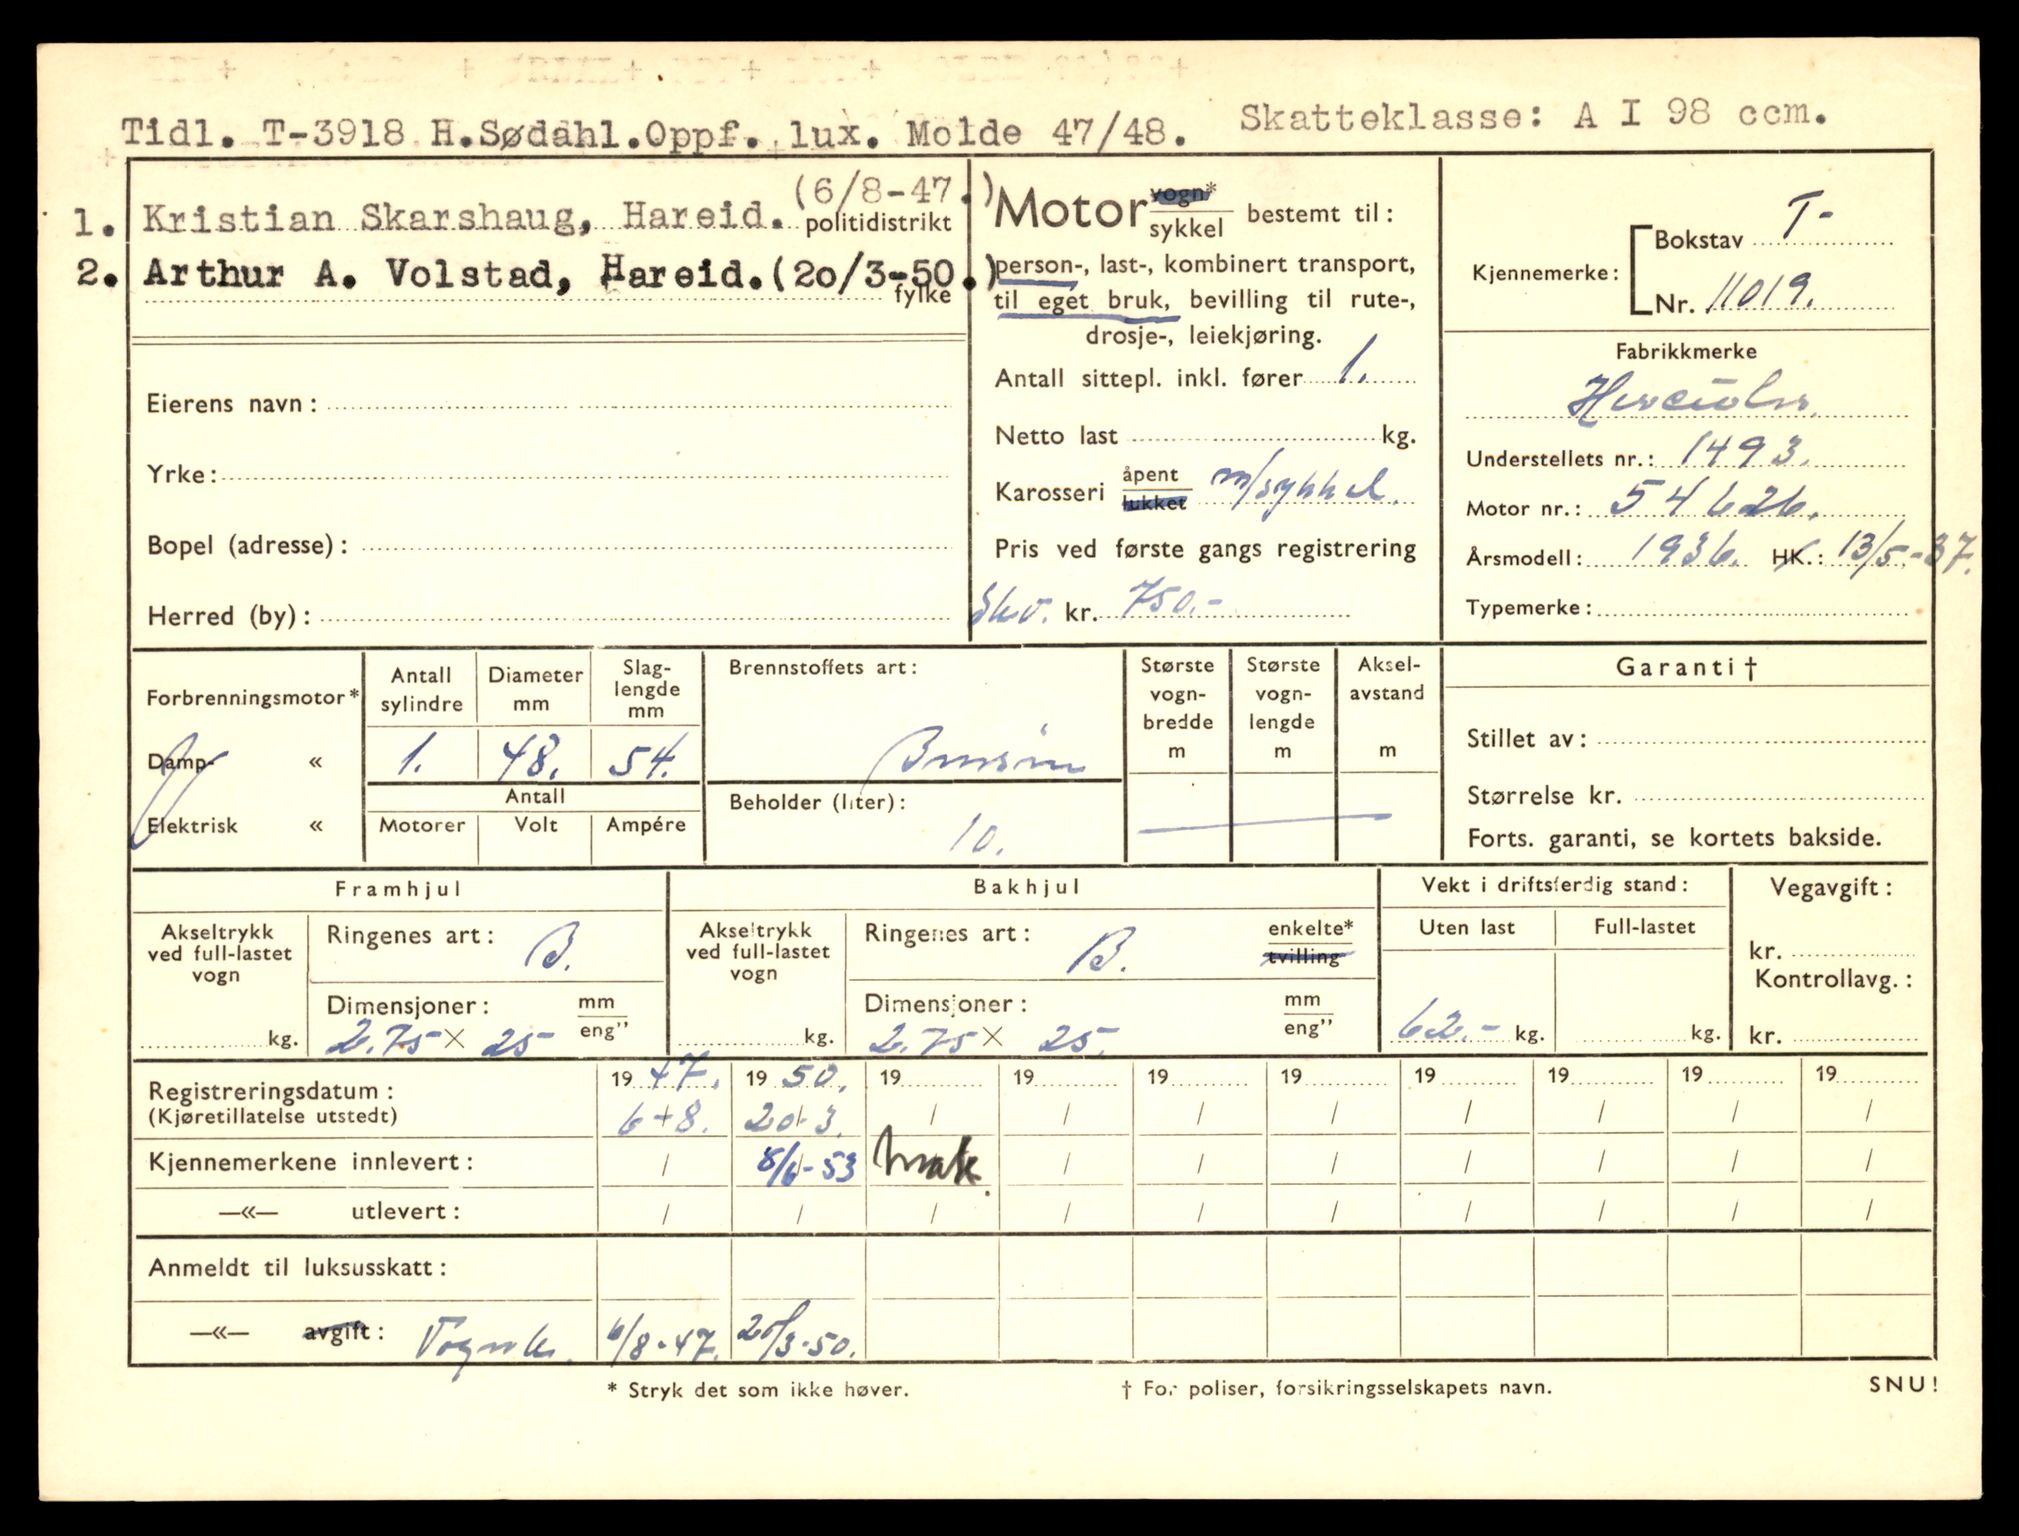 Tidl. T-3918 H.Sødahl.Oppf. lux. Molde 47/48. Skatteklasse: A I 98 ccm.
1. Kristian Skarshaug, Hareid. (6/8-47.)
politidistrikt
2. Arthur A. Volstad, Hareid.(20/3-50.)
fylke
Eierens navn:
Yrke:
Bopel (adresse):
Herred (by):
Motor vogn*
sykkel bestemt til:
person-, last-, kombinert transport,
til eget bruk, bevilling til rute-,
drosje-, leiekjøring.
Antall sittepl. inkl. fører 1.
Netto last kg.
Karosseri åpent
lukket m/sykkel.
Pris ved første gangs registrering
kr. 750.-
Kjennemerke: Bokstav T-
Nr. 11019.
Fabrikkmerke
Hercules
Understellets nr.: 1493.
Motor nr.: 54626.
Årsmodell: 1936. HK.: 13/5.-37.
Typemerke:
Forbrenningsmotor*
Damp- «
Elektrisk «
Antall sylindre
Diameter mm
Slag-lengde mm
1. 48. 54.
Antall
Motorer Volt Ampére
Brennstoffets art:
Bensin
Beholder (liter):
10.
Største vogn-bredde m
Største vogn-lengde m
Aksel-avstand m
Garanti †
Stillet av:
Størrelse kr.
Forts. garanti, se kortets bakside.
Framhjul
Akseltrykk ved full-lastet vogn
kg.
Ringenes art: B.
Dimensjoner: mm
eng”
2.75 × 25
Bakhjul
Akseltrykk ved full-lastet vogn
kg.
Ringenes art: B. enkelte*
tvilling
Dimensjoner: mm
eng”
2.75 × 25.
Vekt i driftsferdig stand:
Uten last Full-lastet
62.- kg. kg.
Vegavgift:
kr.
Kontrollavg.:
kr.
Registreringsdatum: 19 47. 19 50. 19 19 19 19 19 19 19 19
(Kjøretillatelse utstedt) 6/8. 20/3. / / / / / / / /
Kjennemerkene innlevert: / 8/6-53 / / / / / / /
—«— utlevert: / / / / / / / / / /
Anmeldt til luksusskatt:
—«— avgift: 6/8-47. 20/3-50.
* Stryk det som ikke høver. † For poliser, forsikringsselskapets navn. SNU!